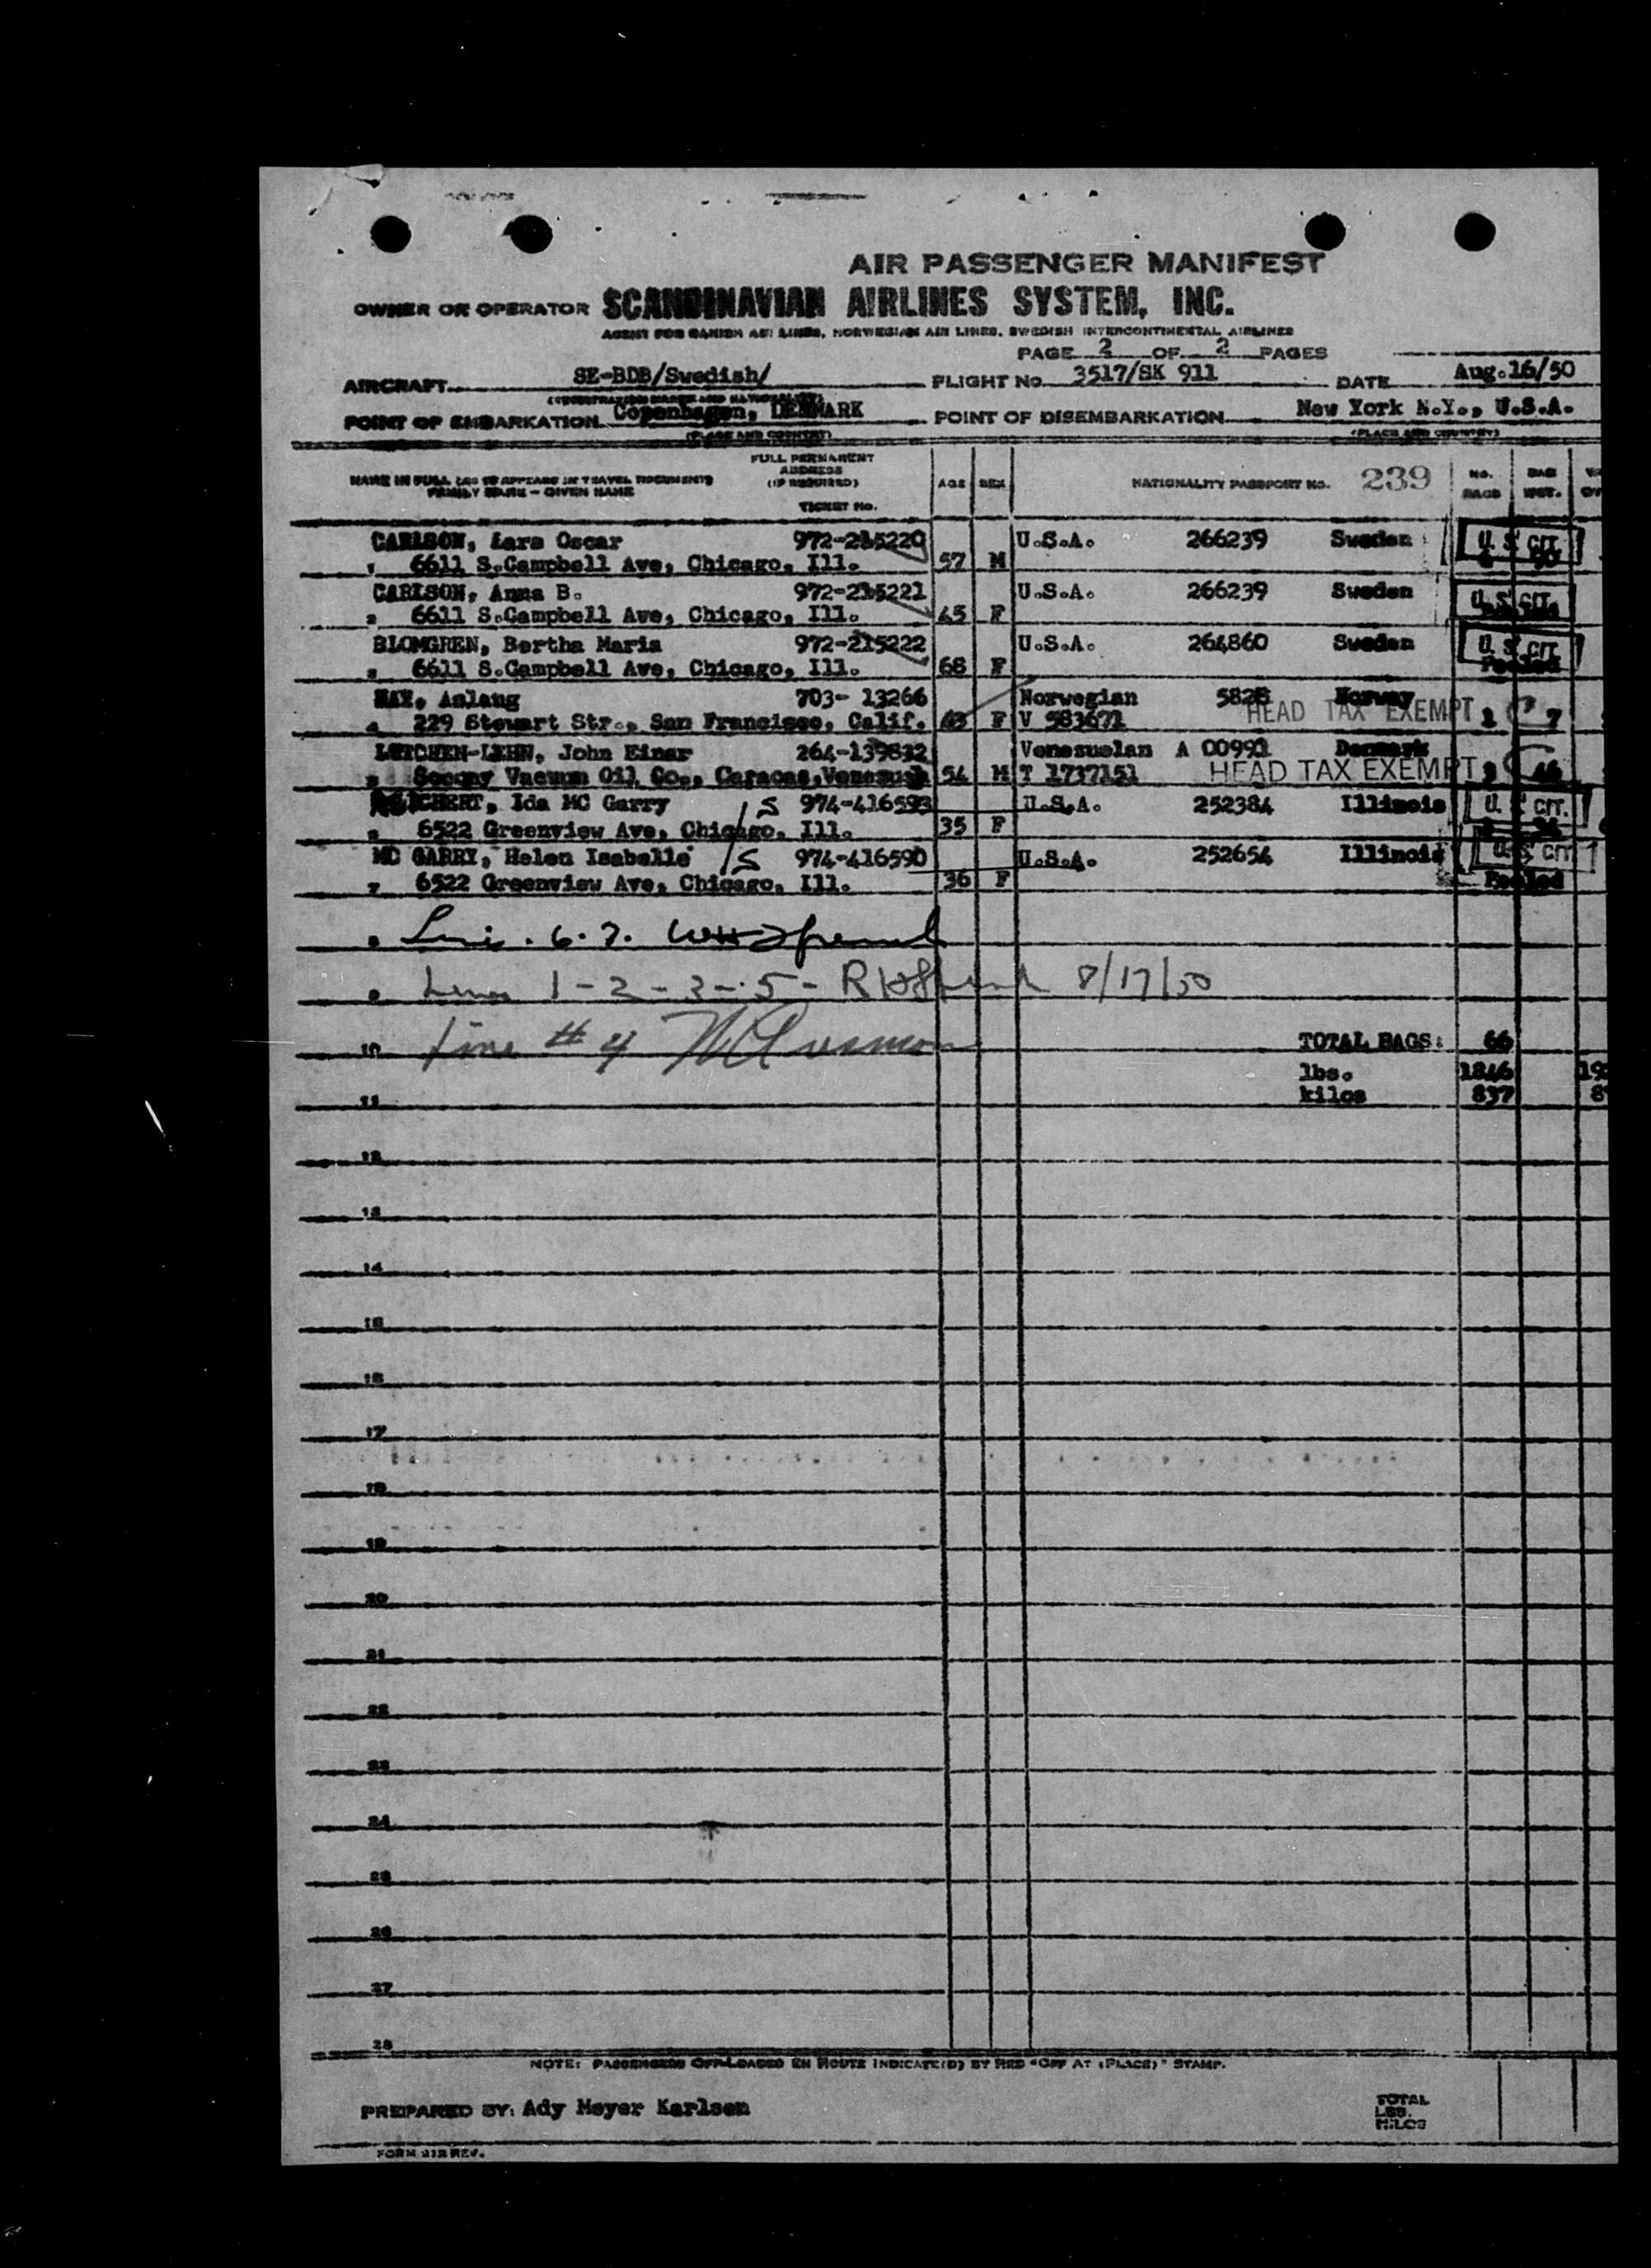 AIR PASSENGER MANIFEST
OWNER OR OPERATOR SCANDINAVIAN AIRLINES SYSTEM, INC.
AGENT FOR DANISH AIR LINES, NORWEGIAN AIR LINES, SWEDISH INTERCONTINENTAL AIRLINES
PAGE 2 OF 2 PAGES
AIRCRAFT SE-BDB/Swedish/ FLIGHT No. 3517/SK 911 DATE Aug.16/50
POINT OF EMBARKATION Copenhagen, DENMARK POINT OF DISEMBARKATION New York N.Y., U.S.A.
(PLACE AND COUNTRY) (PLACE AND COUNTRY)
NAME IN FULL (AS IT APPEARS IN TRAVEL DOCUMENTS) FAMILY NAME - GIVEN NAME FULL PERMANENT ADDRESS (IF REQUIRED) TICKET No. AGE SEX NATIONALITY PASSPORT No. 239 NO. BAGS BAG WGT.
CARLSON, Lars Oscar 972-215220 U.S.A. 266239 Sweden U.S. CIT.
1 6611 S.Campbell Ave, Chicago, Ill. 57 M
CARLSON, Anna B. 972-215221 U.S.A. 266239 Sweden U.S. CIT.
2 6611 S.Campbell Ave, Chicago, Ill. 45 F
BLOMGREN, Bertha Maria 972-215222 U.S.A. 264860 Sweden U.S. CIT.
3 6611 S.Campbell Ave, Chicago, Ill. 68 F Pooled
Aslaug 703- 13266 Norwegian Norway
4 229 Stewart Str., San Francisco, Calif. 43 F V 583671 HEAD TAX EXEMPT 7
John Einar 264-139832 Venesuelan A 00991 Denmark
5 Socony Vacuum Oil Co., Caracas, 54 M T 1737151 HEAD TAX EXEMPT
Ida MC Garry /S 974-416593 U.S.A. 252384 Illinois U.S. CIT.
6 6522 Greenview Ave, Chicago, Ill. 35 F
MC GARRY, Helen Isabelle /S 974-416590 U.S.A. 252654 Illinois U.S. CIT.
7 6522 Greenview Ave, Chicago, Ill. 36 F Pooled
8 6.7.
9 Lines 1-2-3-5- 8/17/50
10 Line # 4 TOTAL BAGS: 66
lbs. 1846
11 kilos 837
12
13
14
15
16
17
18
19
20
21
22
23
24
25
26
27
28
NOTE: PASSENGERS OFF-LOADED EN ROUTE INDICATE(D) BY RED "OFF AT (PLACE)" STAMP.
PREPARED BY: Ady Meyer Karlsen TOTAL
LBS.
KILOS
FORM 212 REV.